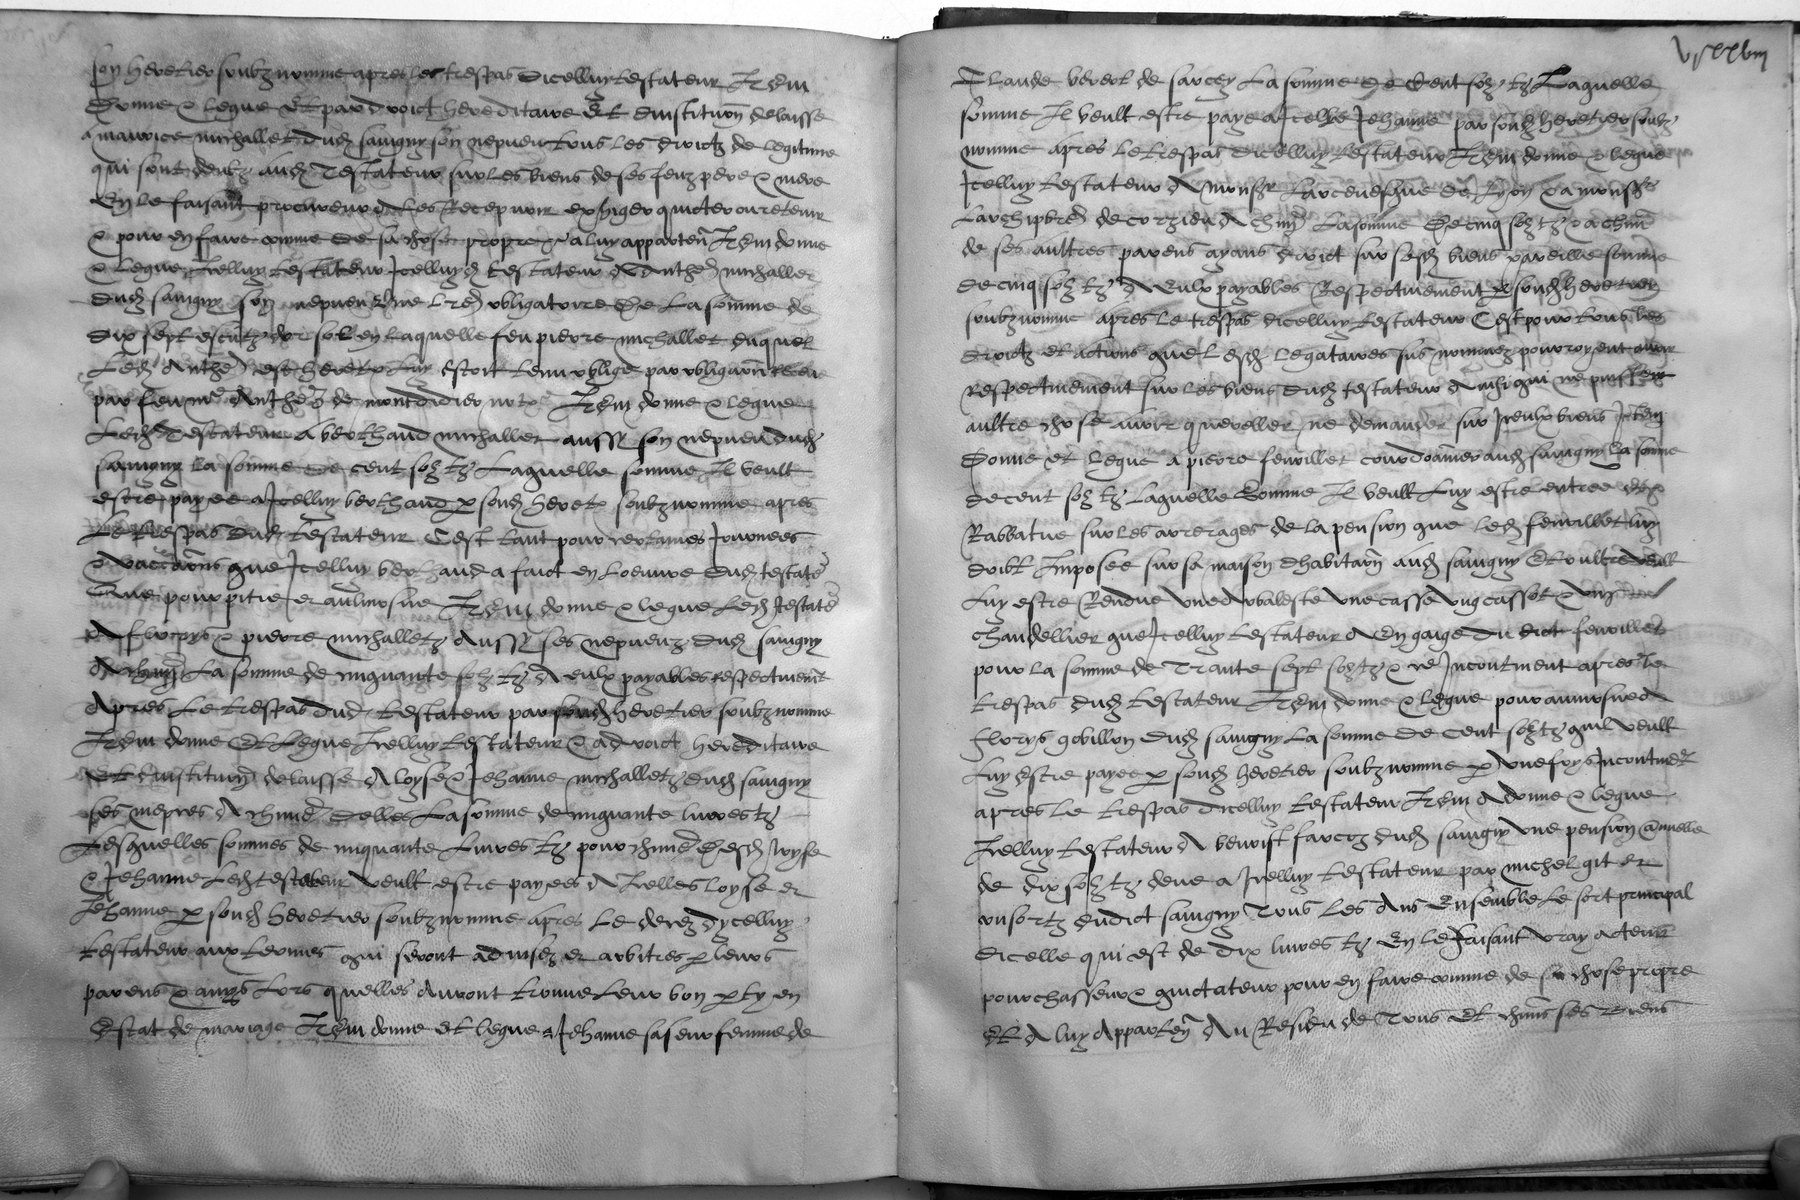 son heretier soubz nomme apres les trespas dicelluy testateur Item
donne & legue et par droict hereditaire et dinstitution delaisse
a maurice michallet dud savigny son nepveu tous les droictz de legitime
qui sont deubz aud Testateur sur les biens de ses feuz pere & mere
En le faisant procureur a les Recepvoir exhiger quicter cureteur
& pour en faire comme de sa chose propre & a luy apparten Item donne
& legue Icelluy testateur Icelluyd testateur A Anthe michallet
dud savigny son nepveu Une lred obligatoire De La somme de
dix sept escutz dor sol en laquelle feu pierre michallet duquel
Led Anthe est heret luy estoit tenu oblige par obligaon receue
par feu me Anthe de montdidier not Item donne & legue
Led Testateur A berthaud michallet aussy son nepveu dud
savigny la somme de cent solz tz Laquelle somme Il veult
estre payee a Icelluy berthaud p soud heret soubz nomme apres
Le trespas dud testateur Cest tant pour certaines Journees
& vaccaons que Icelluy berthaud a faict en loeuvre dud testate
Que pour pitie et aulmosne Item donne & legue Led testate
A & pierre michalletz Aussy ses nepveuz dud savigny
A chun La somme de cinquante solz tz A eulx payables respectivemt
Apres Le trespas dud testateur par soud heretier soubz nomme
Item donne Et Legue Icelluy testateur & a droict hereditaire
Et dinstitution delaisse A loyse & Jehanne michalletz dud savigny
ses niepces A chune delles La somme de cinquante livres tz
Lesquelles sommes de cinquante Livres tz pour chune desd loyse
& Jehanne Led testateur veult estre payees A Icelles loyse et
Jehanne p soud heretier soubz nomme apres Le decez dycelluy
testateur aux termes qui seront advisez et arbitres p leurs
parens & amys Lors quelles Auront trouve Leur bon party en
Estat de mariage Item donne et legue A Jehanne sa seur femme de
Claude berert de sarcey La somme De Cent solz tz Laquelle
somme Il veult estre paye a Icelle Jehanne par soud heretier soubz
nomme apres Le trespas dicelluy testateur Item donne & legue
Icelluy testateur A monsr Larcevesque de Lyon & a monsr
Larchiprebre de A chun La somme De cinq solz tz & a chun
de ses aultres parens ayans droict sur sesd biens pareille somme
de cinq solz tz A eulx payables Respectivement p soud heretier
soubz nomme apres le trespas dicelluy testateur Cest pour tous les
droictz et actions quel esd legataires sus nommez pourroyent avoir
Respectivement sur les biens dud testateur A ce qui ne puissent
aultre chose avoir quereller ne demander sur Iceulx biens Item
Donne et legue a pierre feuillet courdoannier aud savigny La somme
de cent solz tz Laquelle somme Il veult Luy estre entree &
Rabbatue sur les arrerages de la pension que led feuillet luy
doibt Imposee sur sa maison dhabitaon aud savigny Et oultre veult
Luy estre Rendue une arbaleste une casse ung cassot & ung
chandellier que Icelluy testateur A En gaige du dict feuillet
pour la somme de Trante sept solz tz & ce Incontinent apres le
trespas dud testateur Item donne & legue pour aumosne a
florys gobillon dud savigny La somme De Cent solz tz quil veult
Luy estre payee p soud heretier soubz nomme p une foys Incontinent
apres le trespas dicelluy testateur Item A donne & legue
Icelluy testateur A benoist dud savigny une pension annuelle
de dix solz tz deue a Icelluy testateur par michel git et
consortz dudict savigny Tous Les Ans Ensemble Le sort principal
dicelle qui est de dix livres tz En le faisant vray acteur
pourchasseur & quictateur pour en faire comme de sa chose propre
Et A luy apparten Au Residu de Tous Et chuns ses biens